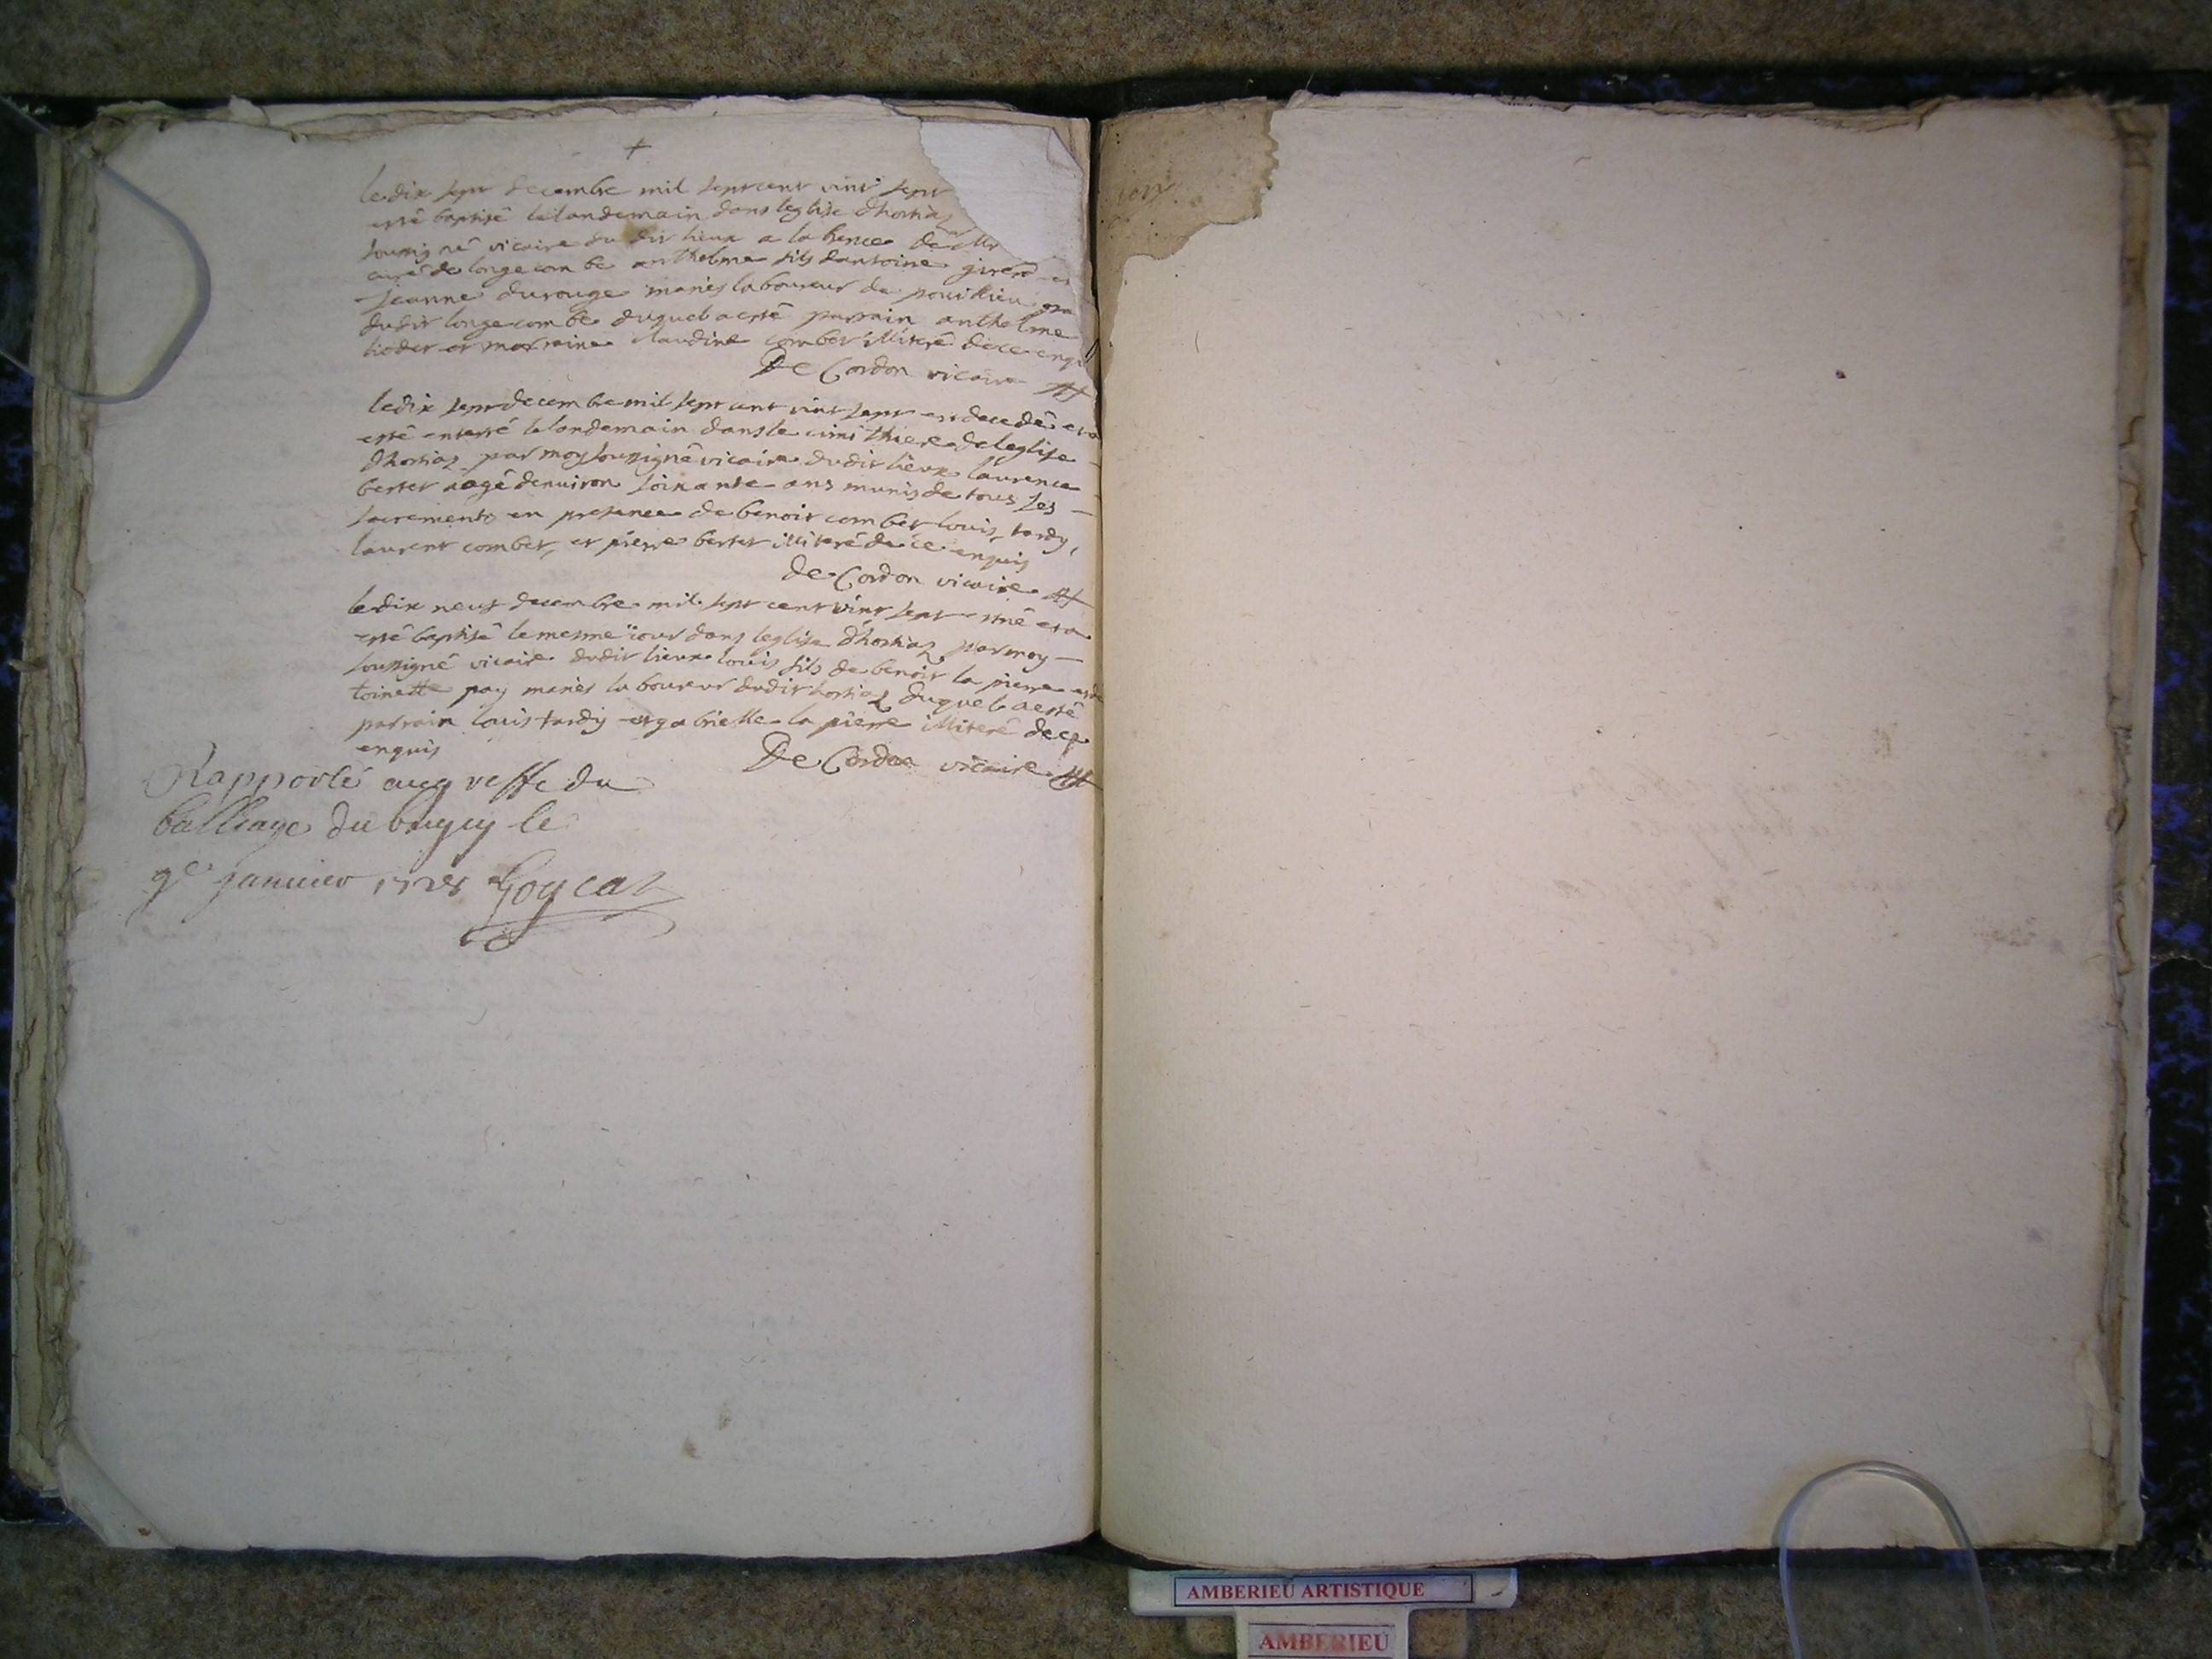 +
le dix sept decembre mil sept cent vint sept
esté baptisé lelandemain dans leglise dhostiaz
soussigné vicaire du dit lieux a labsence de Mr
curé de longecombe anthelme fils dantoine girerd et
jeanne durouge mariés laboureur de
dudit longecombe duquel a esté parrain anthelme
et marraine claudine combet illiteré dece enqu
De Cordon vicaire
le dix sept decembre mil sept cent vint sept est decedé et a
esté enterré lelandemain dans le cimithiere de leglise
dhostiaz par moy soussigné vicaire dudit lieux laurence
bertet aagé denuiron soixante ans munis de tous ses
sacrements en presence de benoit combet louis tardy,
laurent combet, et pierre bertet illiteré de ce enquis
de Cordon vicaire
le dix neuf decembre mil sept cent vint sept est né et a
esté baptisé le mesme iour dans leglise dhostiaz par moy
soussigné vicaire dudit lieux louis fils de benoit la pierre et de
toinette pay mariés laboureur dudit hostiaz duquel a esté
parrain louis tardy et gabrielle la pierre illiteré de ce
enquis
De Cordon vicaire
Rapporté au greffe du
balliage du bugey le
9e januier 1728
AMBERIEU ARTISTIQUE
AMBERIEU